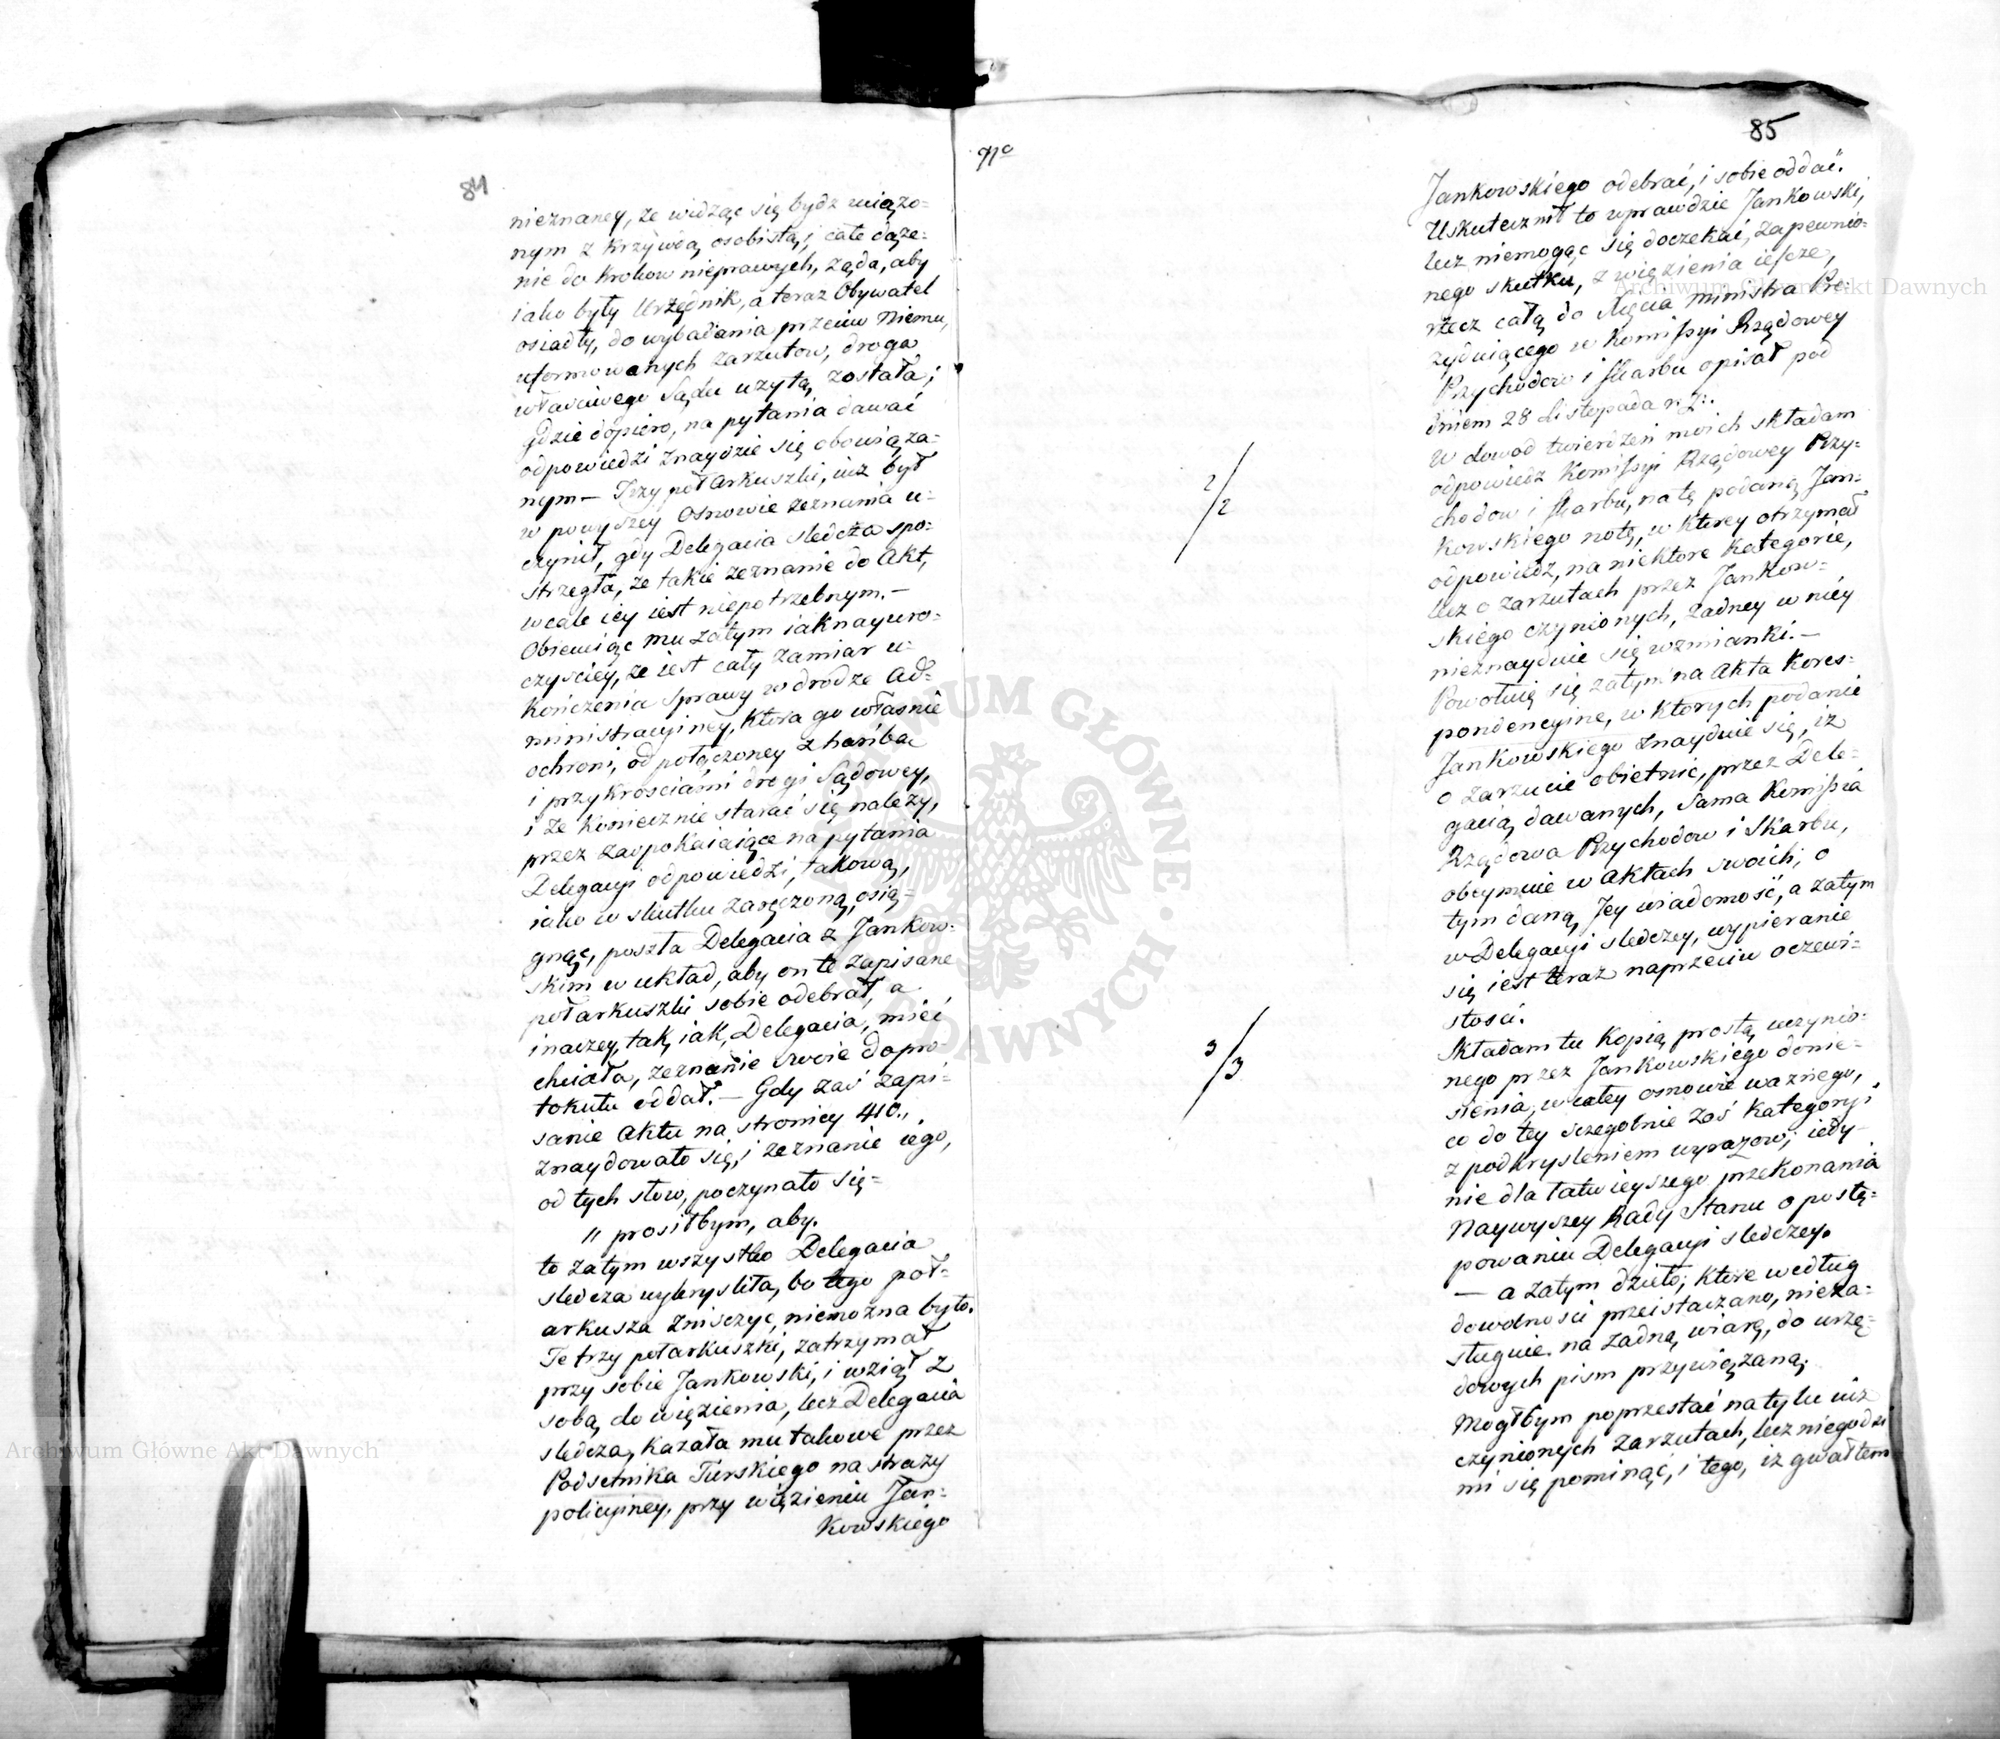 84
nieznaney, że widząc się bydz uciążo=
nym z krzywdą osobistą, i całe dąże=
nie do krokow nieprawych, żąda, aby
iako były Urzędnik, a teraz Obywatel
osiadły, do wybadania przeciw Niemu,
uformowanych zarzutow, droga
właściwego Sądu użytą została;
gdzie dopiero, na pytania dawać
odpowiedzi znaydzie się obowiąza=
nym — Trzy połarkuszki, iuż był
w powyższey Osnowie zeznania u=
czynił, gdy Delegacia sledcza spo=
strzegła, że takie zeznanie do Akt,
wcale iey iest niepotrzebnym. —
Obiecuiąc mu zatym iaknayuro=
czyściey, że iest cały zamiar u=
kończenia Sprawy w drodze Ad=
ministracyiney, ktora go własnie
ochroni, od połączoney z hańbą
i przykrosciami drogi Sądowey,
i że koniecznie starać się należy,
przez zaspokaiaiące na pytania
Delegacyi odpowiedzi, takową,
iako w skutku zaręczoną, osią=
gnąć, poszła Delegacia z Jankow=
skim w układ, aby on te zapisane
połarkuszki sobie odebrał, a
inaczey, tak, iak, Delegacia, mieć
chciała, zeznanie swoie do pro=
tokułu oddał. — Gdy zaś zapi=
sanie Aktu na stronicy 410.,
znaydowało się, i zeznanie iego,
od tych słow, poczynało się=
" prosiłbym, aby.
to zatym wszystko Delegacia
sledcza wykryslita, bo tego poł=
arkusza zniszczyc, niemożna było.
Te trzy połarkuszki, zatrzymał
przy sobie Jankowski, i wziął z
sobą do więzienia, lecz Delegacia
sledcza, kazała mu takowe przez
Podsetnika Turskiego na straży
policyiney, przy więzieniu Jan=
kowskiego
85
Jankowskiego odebrać, i sobie oddać.
Uskutecznił to wprawdzie Jankowski,
lecz niemogąc się doczekać, zapewnio=
nego skutku, z więzienia ieszcze,
rzecz całą do Xięcia Ministra Pre=
zyduiącego w Komissyi Rządowey
Przychodow i Skarbu opisał pod
dniem 28 Listopada r. z.
W dowod twierdzeń moich składam
2/2
odpowiedz Komissyi Rządowey Przy=
chodow i Skarbu, na tę podaną Jan=
kowskiego notę, w ktorey otrzymał
odpowiedz, na niektore kategorie,
lecz o zarzutach przez Jankow=
skiego czynionych, żadney w niey
nieznayduie się wzmianki. —
Powołuię się zatym na Akta kores=
pondencyine, w ktorych podanie
Jankowskiego znayduie się, iż
o zarzucie obietnic, przez Dele=
gacią dawanych, Sama Komissia
Rządowa Przychodow i Skarbu,
obeymuie w aktach swoich, o
tym daną Jey wiadomość, a zatym
w Delegacyi sledczey, wypieranie
się iest teraz naprzeciw oczewi=
stosci.
3/3
Składam tu kopią prostą, uczynio=
nego przez Jankowskiego donie=
sienia, w całey osnowie ważnego,
co do tey szczegolnie zaś kategoryi
z podkrysleniem wyrazow, iedy=
nie dla łatwieyszego przekonania
Naywyzszey Rady Stanu o postę=
powaniu Delegacyi sledczey.
— a zatym dzieło, ktore według
dowolnosci przeistaczano, nieza=
sługuie na żadną wiarę, do urzę=
dowych pism przywiązaną.
Mogłbym poprzestać na tylu iuż
czynionych zarzutach, lecz niegodzi
mi się pominąć, i tego, iż gwałtem